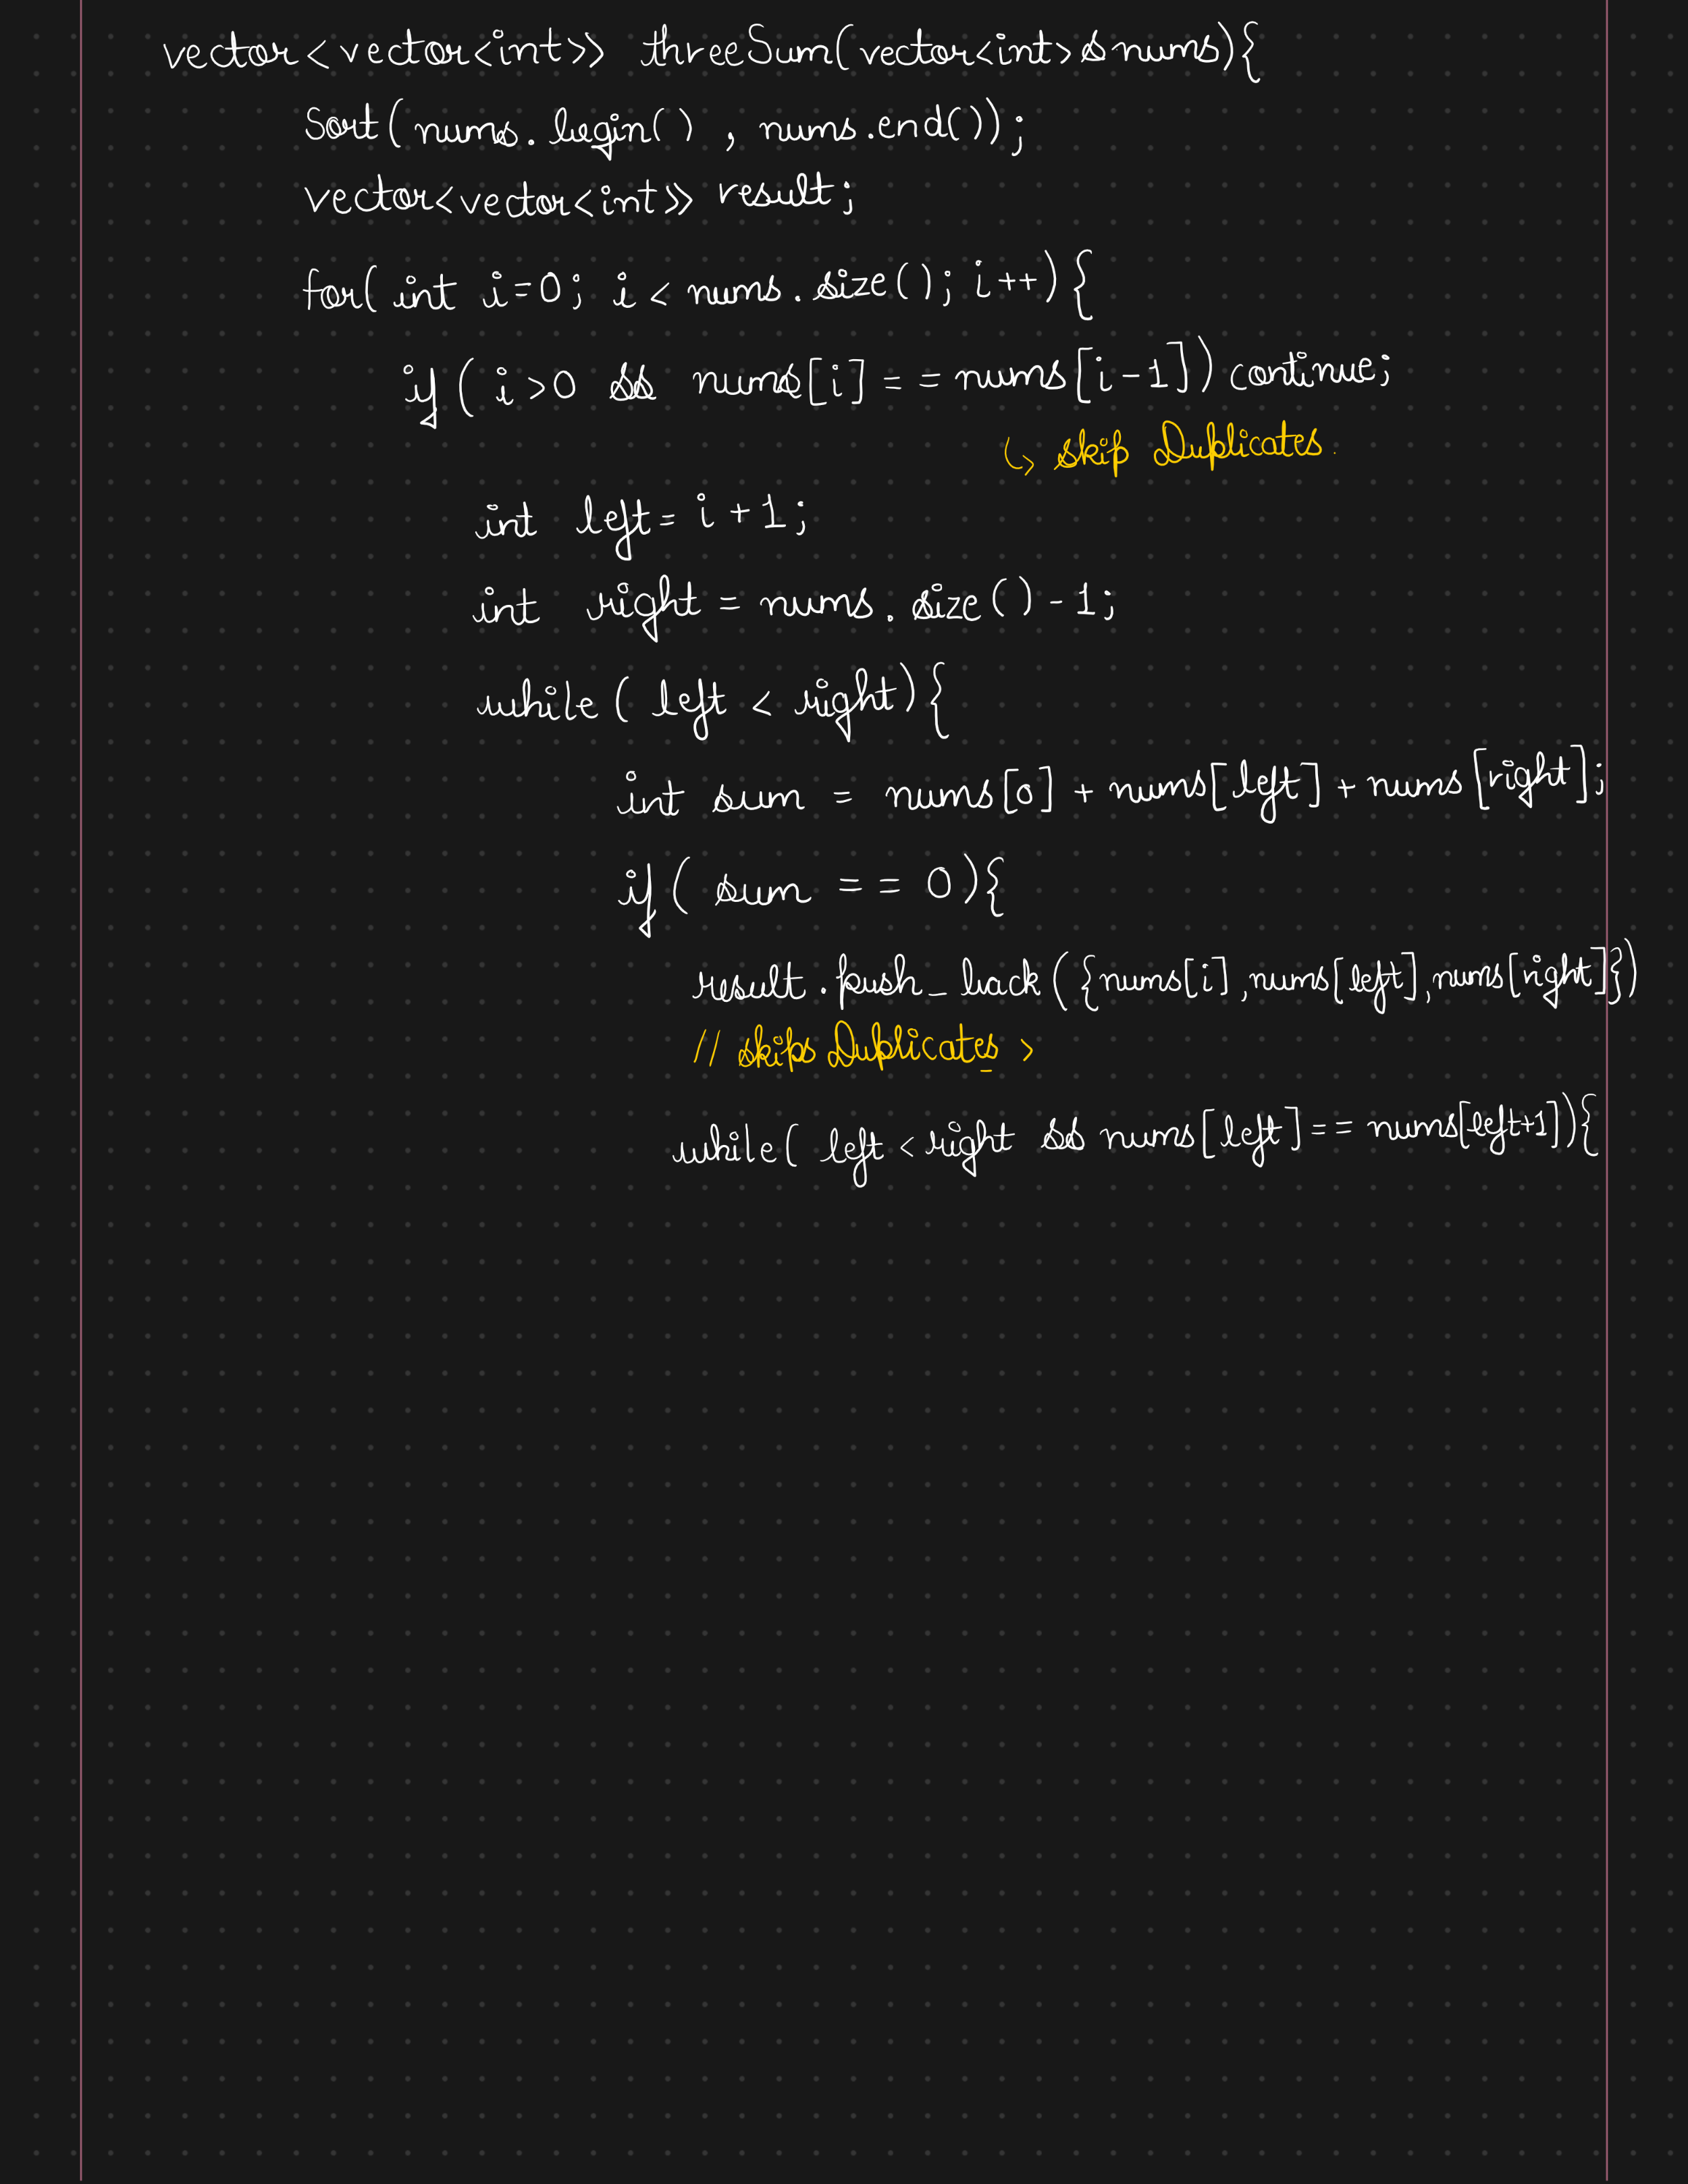 vector<vector<int>> threeSum(vector<int>& nums){
Sort(nums.begin() , nums.end());
vector<vector<int>> result;
for( int i=0; i < nums.size(); i++){
if( i>0 && nums[i] == nums[i-1]) continue;
↳ skip Duplicates.
int left = i + 1;
int right = nums.size() - 1;
while( left < right){
int sum = nums[0] + nums[left] + nums[right];
if( sum == 0){
result.push_back({nums[i], nums[left], nums[right]})
// skips Duplicates >
while( left < right && nums[left] == nums[left+1]){